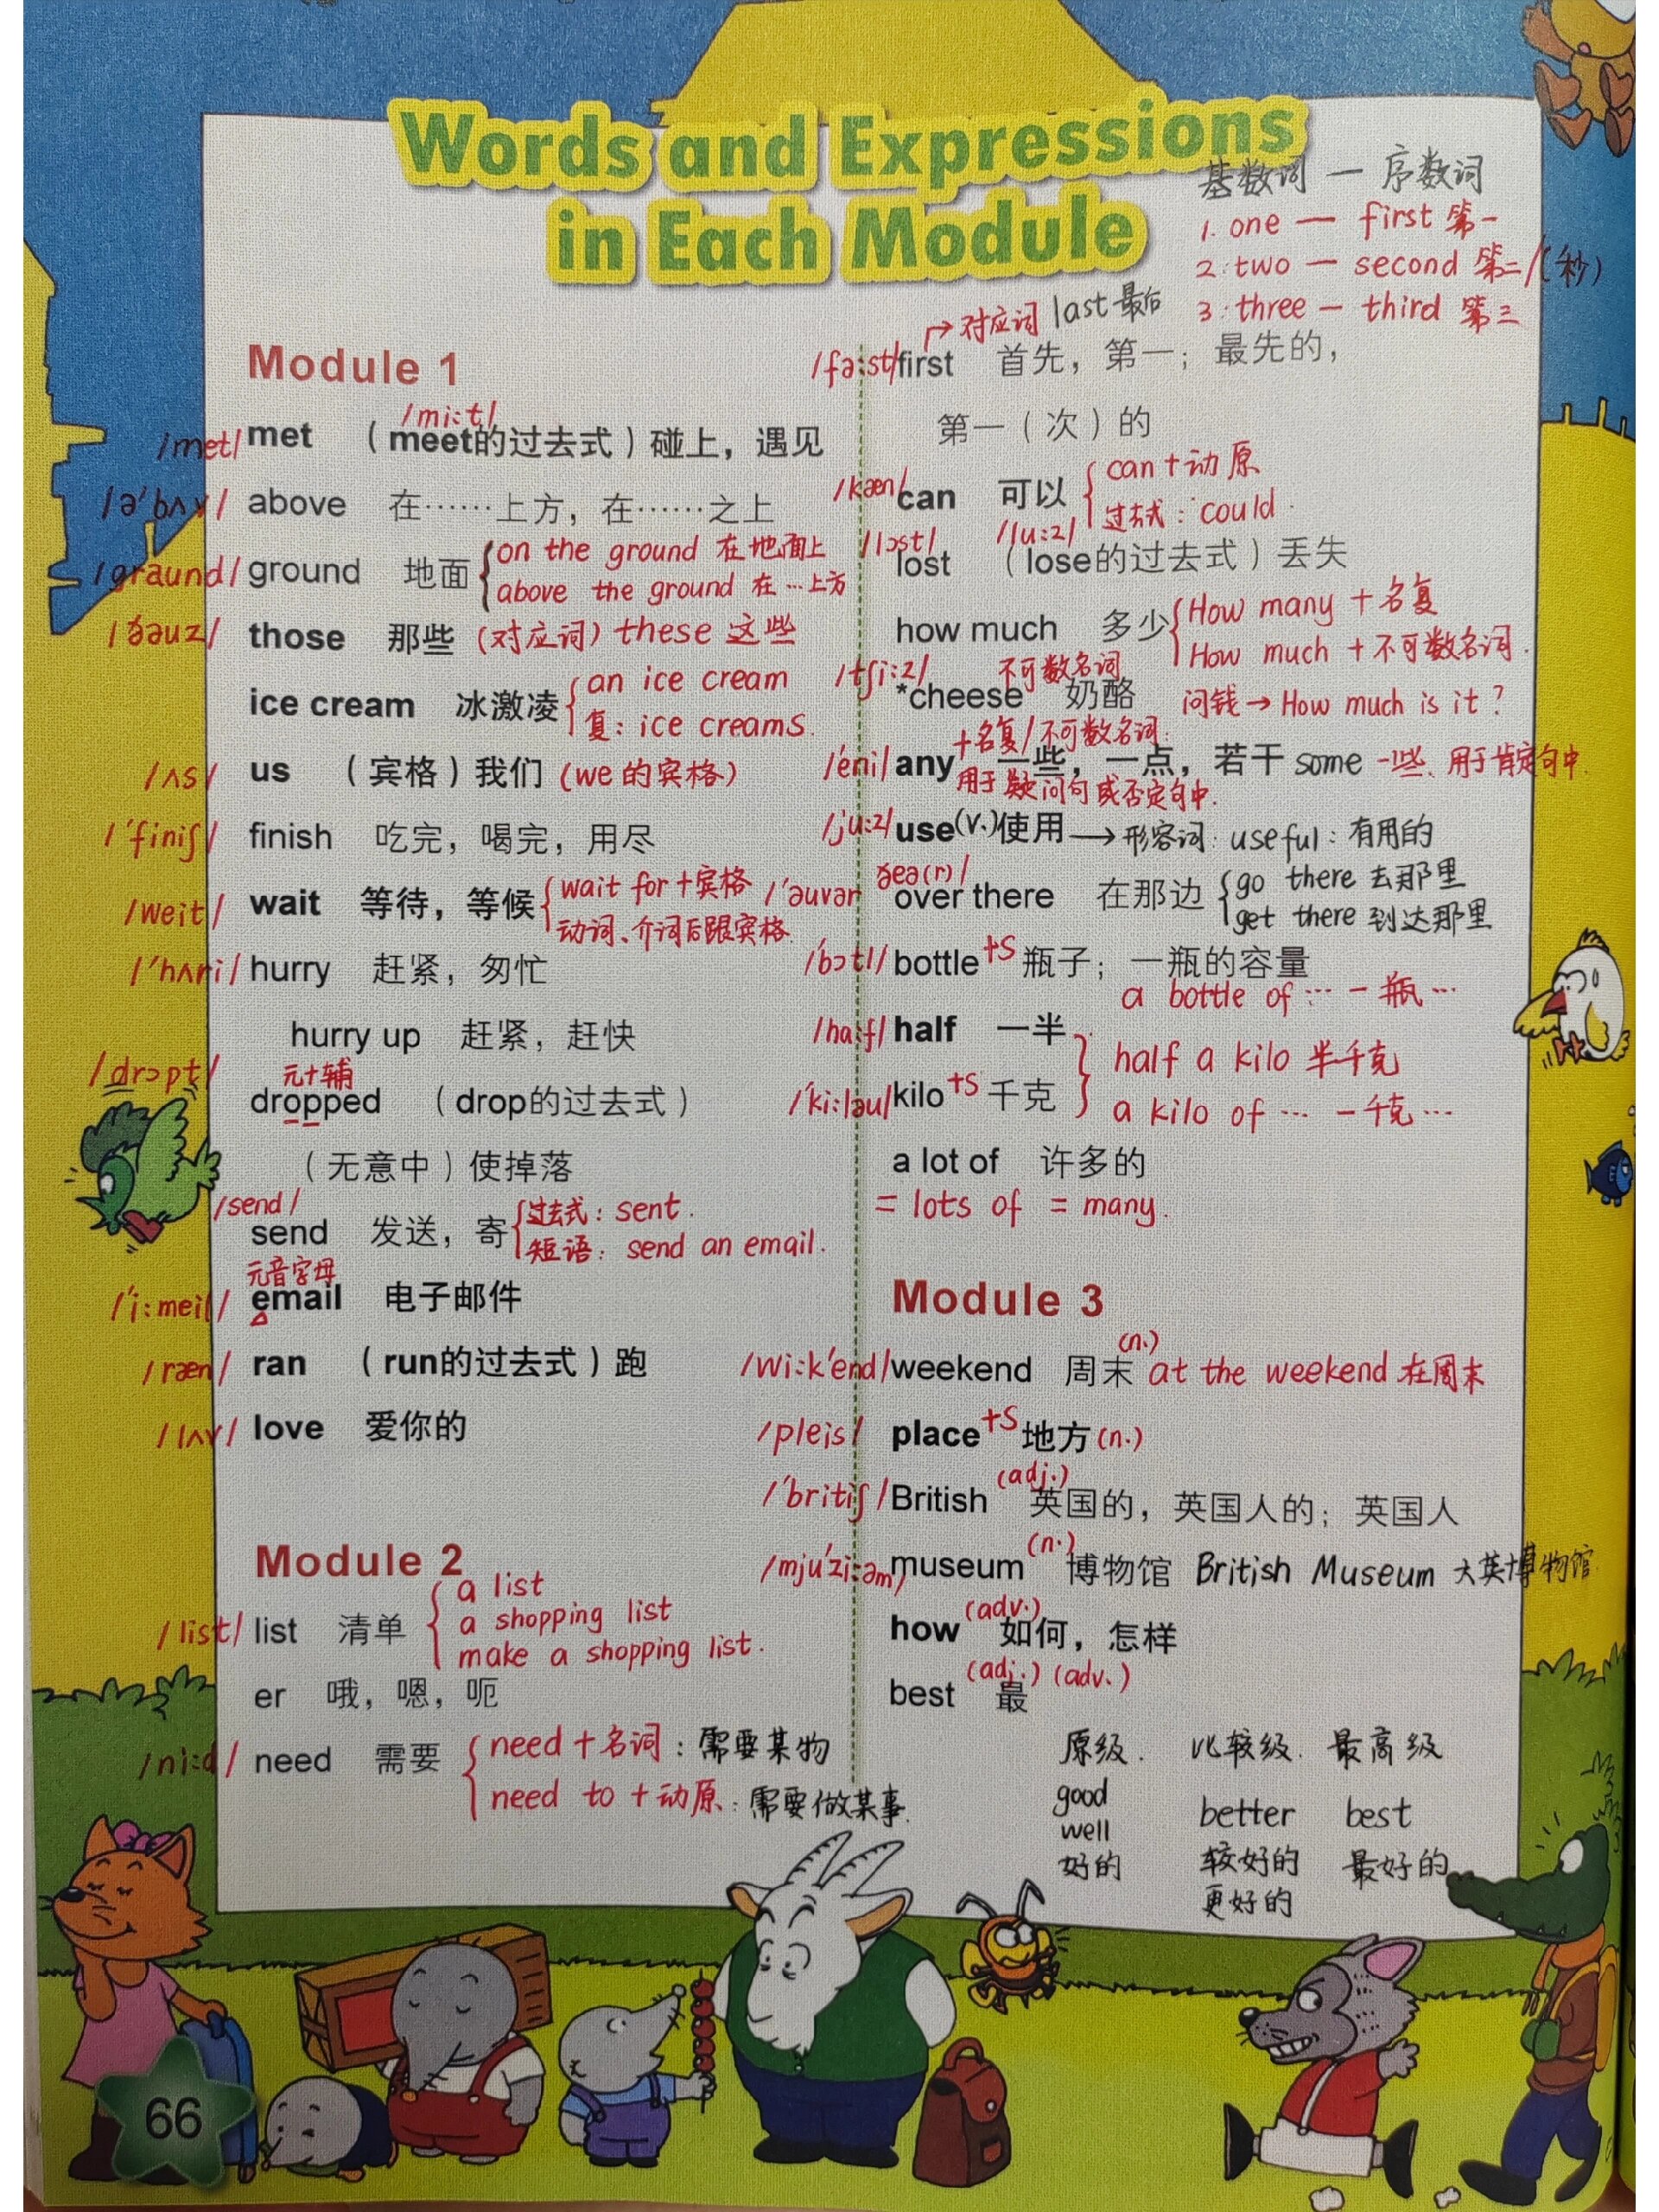 Words and Expressions
in Each Module
基数词 — 序数词
1. one — first 第一
2. two — second 第二/(秒)
3. three — third 第三
Module 1
/met/ met （meet的过去式）碰上，遇见
/mi:t/
/ə'bʌv/ above 在……上方，在……之上
/graund/ ground 地面
on the ground 在地面上
above the ground 在…上方
/ðəuz/ those 那些 (对应词) these 这些
ice cream 冰激凌
an ice cream
复: ice creams.
/ʌs/ us （宾格）我们 (we 的宾格)
/'finiʃ/ finish 吃完，喝完，用尽
/weit/ wait 等待，等候
wait for +宾格
动词、介词后跟宾格.
/'hʌri/ hurry 赶紧，匆忙
hurry up 赶紧，赶快
/drɔpt/ 元+辅
dropped （drop的过去式）
（无意中）使掉落
/send/
send 发送，寄
过去式: sent.
短语: send an email.
元音字母
/'i:meil/ email 电子邮件
/ræn/ ran （run的过去式）跑
/lʌv/ love 爱你的
Module 2
/list/ list 清单
a list
a shopping list
make a shopping list.
er 哦，嗯，呃
/ni:d/ need 需要
need +名词: 需要某物
need to +动原: 需要做某事.
对应词 last 最后
/fə:st/ first 首先，第一；最先的，
第一（次）的
/kæn/ can 可以
can+动原
过去式: could.
/lɔst/ /lu:z/
lost （lose的过去式）丢失
how much 多少
How many +名复
How much +不可数名词.
/tʃi:z/ 不可数名词
*cheese 奶酪 问钱→How much is it?
+名复/不可数名词.
/'eni/ any 一些，一点，若干 some 一些、用于肯定句中.
用于疑问句或否定句中.
/ju:z/ use (v.) 使用 → 形容词: useful: 有用的
/'əuvər ðeə(r)/
over there 在那边
go there 去那里
get there 到达那里
/'bɔtl/ bottle +s 瓶子；一瓶的容量
a bottle of … 一瓶…
/ha:f/ half 一半
half a kilo 半千克
/'ki:ləu/ kilo +s 千克
a kilo of … 一千克…
a lot of 许多的
= lots of = many.
Module 3
/wi:k'end/ weekend 周末 (n.) at the weekend 在周末
/pleis/ place +s 地方 (n.)
/'britiʃ/ British (adj.) 英国的，英国人的；英国人
/mju'zi:əm/ museum (n.) 博物馆 British Museum 大英博物馆.
how (adv.) 如何，怎样
best (adj.) (adv.) 最
原级. 比较级. 最高级
good
well better best
好的 较好的 最好的
更好的
66